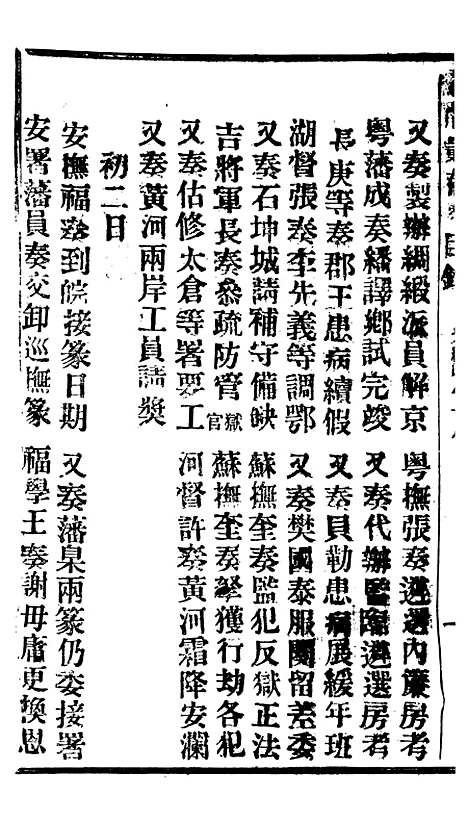 又奏製辦綢緞派員解京　粵撫張奏遴選內簾房考
粵藩成奏繙譯鄉試完竣　又奏代辦監臨遴選房考
長庚等奏郡王患病續假　又奏貝勒患病展緩年班
湖督張奏李先義等調鄂　又奏樊國泰服闋留差委
又奏石坤城請補守備缺　蘇撫奎奏監犯反獄正法
吉將軍長奏叅疏防管獄官　蘇撫奎奏拏獲行劫各犯
又奏估修太倉等署要工　河督許奏黃河霜降安瀾
又奏黃河兩岸工員請獎
初二日
安撫福奏到皖接篆日期　又奏藩臬兩篆仍委接署
安署藩員奏交卸巡撫篆　福學王奏謝毋庸更換恩